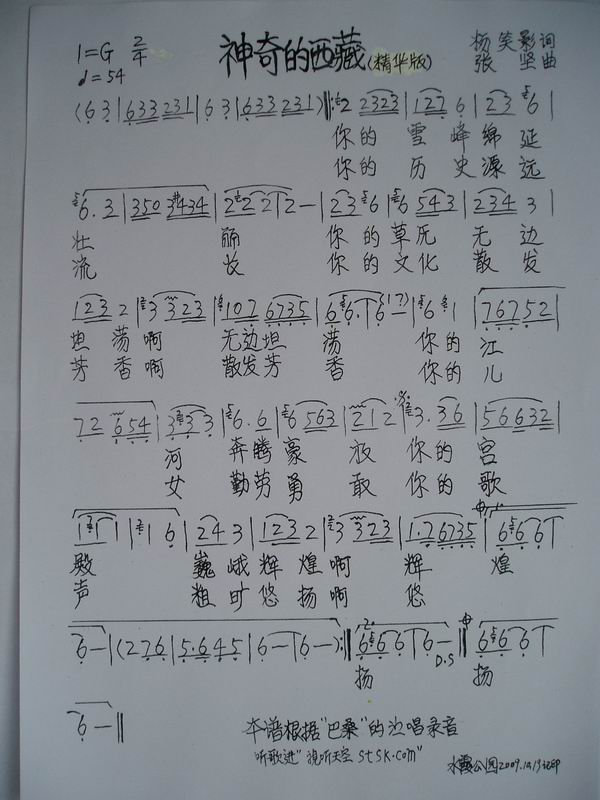 1=G 2/4 神奇的西藏(精华版) 杨笑影词
♩=54 张 坚曲
(6 3|633 231|6 3|633 231):‖2 2323|127 6|23 6|
你的 雪峰绵延
你的 历史源远
6. 3|350 3434|2 2 2 2|2-|23 6|6 543|234 3|
壮 丽 你的草原 无边
流 长 你的文化 散发
123 2|3 323|107 6735|6 6. 6|6 1|76752|
坦荡啊 无边坦 荡 你的江
芳香啊 散发芳 香 你的儿
72 654|3 3 3|6. 6|6 563|2 1 2|3. 36|56632|
河 奔腾豪 放 你的宫
女 勤劳勇 敢 你的歌
1 1 1|1 6|24 3|123 2|3 323|1.7 6735|6 6 6|
殿 巍峨辉煌啊 辉 煌
声 粗旷悠扬啊 悠
6-|(276|5.645|6-|6-):‖6 6 6|6-‖6 6 6|
D.S
扬 扬
6-‖
本谱根据"巴桑"的演唱录音
听歌进"视听天空stsk.com"
水霞公园2009.10.19记印